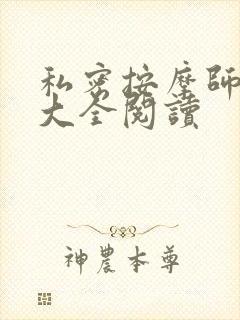 私密按摩師
大全閱讀
神農本尊